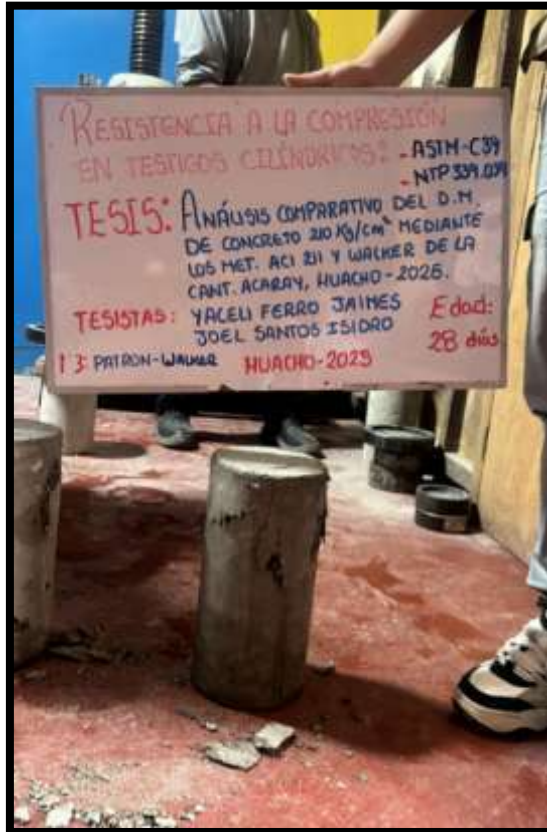 RESISTENCIA A LA COMPRESIÓN
EN TESTIGOS CILÍNDRICOS: - ASTM-C39
- NTP 339.034
TESIS: ANÁLISIS COMPARATIVO DEL D.M.
DE CONCRETO 210 Kg/cm² MEDIANTE
LOS MET. ACI 211 Y WALKER DE LA
CANT. ACARAY, HUACHO-2025.
TESISTAS: YACELI FERRO JAIMES
JOEL SANTOS ISIDRO
Edad:
28 días
PATRON-WALKER HUACHO-2025